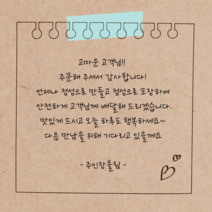 고마운 고객님!!
주문해 주셔서 감사합니다!
언제나 정성으로 만들고 정성으로 포장하여
안전하게 고객님께 배달해 드리겠습니다.
맛있게 드시고 오늘 하루도 행복하세요~
다음 만남을 위해 기다리고 있을게요
- 주인장올림 -